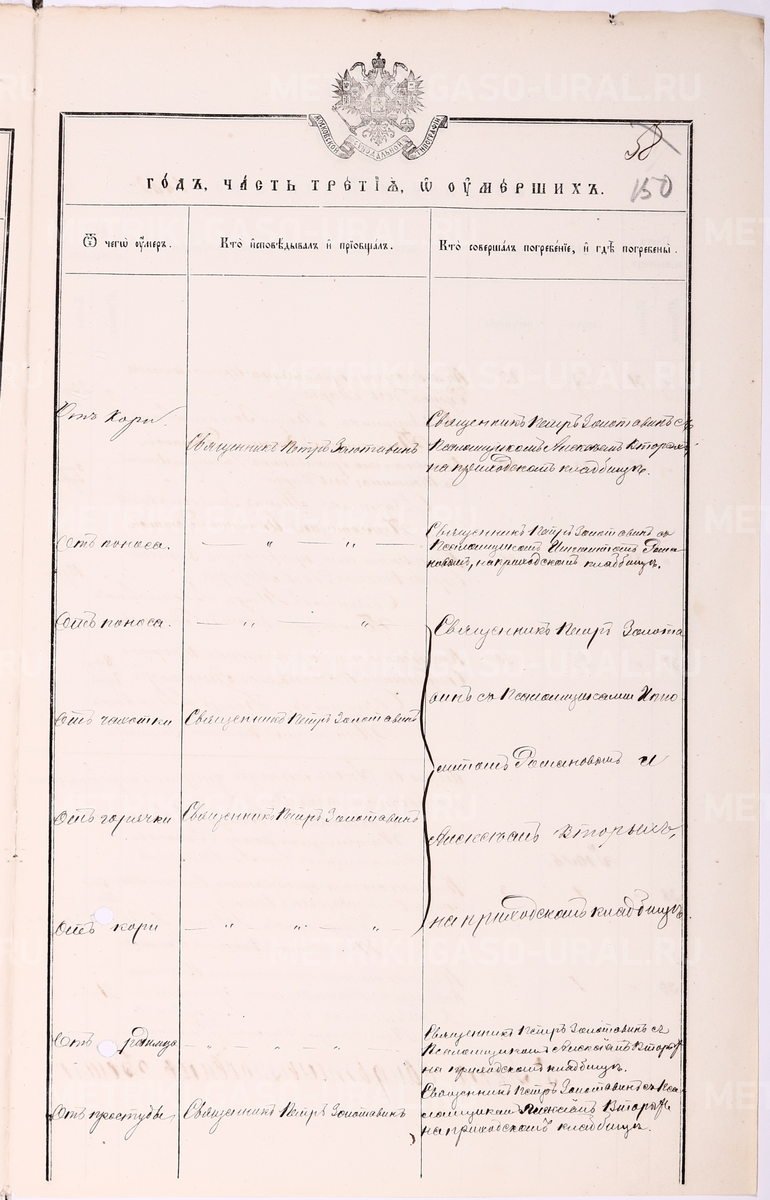 МОСКОВСКОЙ СѴНОДАЛЬНОЙ ТИПОГРАФІИ
58
150
ГОДЪ, ЧАСТЬ ТРЕТІѦ, Ѡ ОУМЕРШИХЪ.
Ѿ чегѡ оумеръ.
Кто исповѣдывалъ и пріобщалъ.
Кто совершалъ погребеніе, и гдѣ погребены.
Отъ кори.
Священникъ Петръ Золотавинъ
Священникъ Петръ Золотавинъ съ
Псаломщикомъ Алексѣемъ Вторыхъ
на приходскомъ кладбищѣ.
Отъ поноса.
— " — " —
Священникъ Петръ Золотавинъ съ
Псаломщикомъ Ипполитомъ Рома
новымъ, на приходскомъ кладбищѣ.
Отъ поноса.
— " — " —
Священникъ Петръ Золота
винъ съ Псаломщиками Иппо-
литомъ Романовымъ и
Алексѣемъ Вторыхъ,
на приходскомъ кладбищѣ.
Отъ чахотки
Священникъ Петръ Золотавинъ
Отъ горячки
Священникъ Петръ Золотавинъ
Отъ кори
— " — " — " —
Отъ родимца
— " — " — " —
Священникъ Петръ Золотавинъ съ
Псаломщикомъ Алексѣемъ Вторых
на приходскомъ кладбищѣ.
Отъ простуды
Священникъ Петръ Золотавинъ
Священникъ Петръ Золотавинъ съ Пса
ломщикомъ Алексѣемъ Вторыхъ
на приходскомъ кладбищѣ.
METRIKI.GASO-URAL.RU